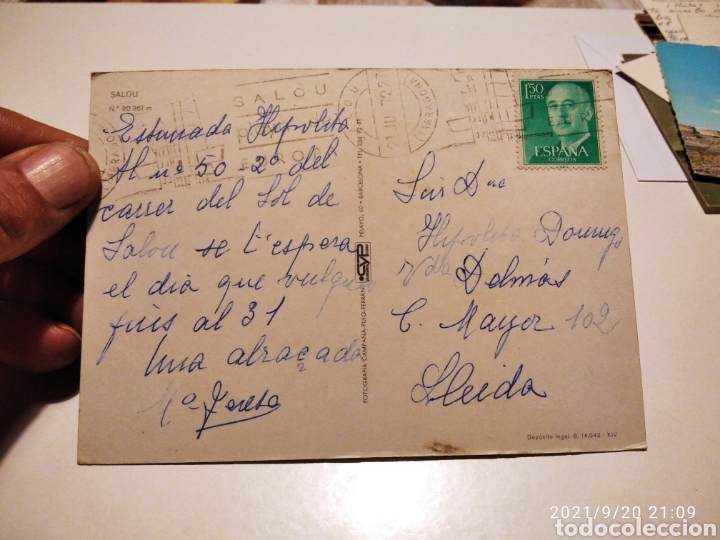 SALOU
N.º 90.361 m
SALOU
Estimada Hipolita
Al nº 50-2º del
carrer del Sol de
Salou se t'espera
el dia que vulguis
fins al 31
Una abraçada
Mª Teresa
FOTOGRAFIA CAMPAÑA-PUIG-FERRAN
CYP
PELAYO, 50 • BARCELONA •
1'50
PTAS
ESPAÑA
CORREOS
21 JUL 72
TARRAGONA
Hipolita Doming
Vda Delmás
C. Mayor 102
Lleida
Depósito legal. B. 14.049.-XIV
2021/9/20 21:09
todocoleccion